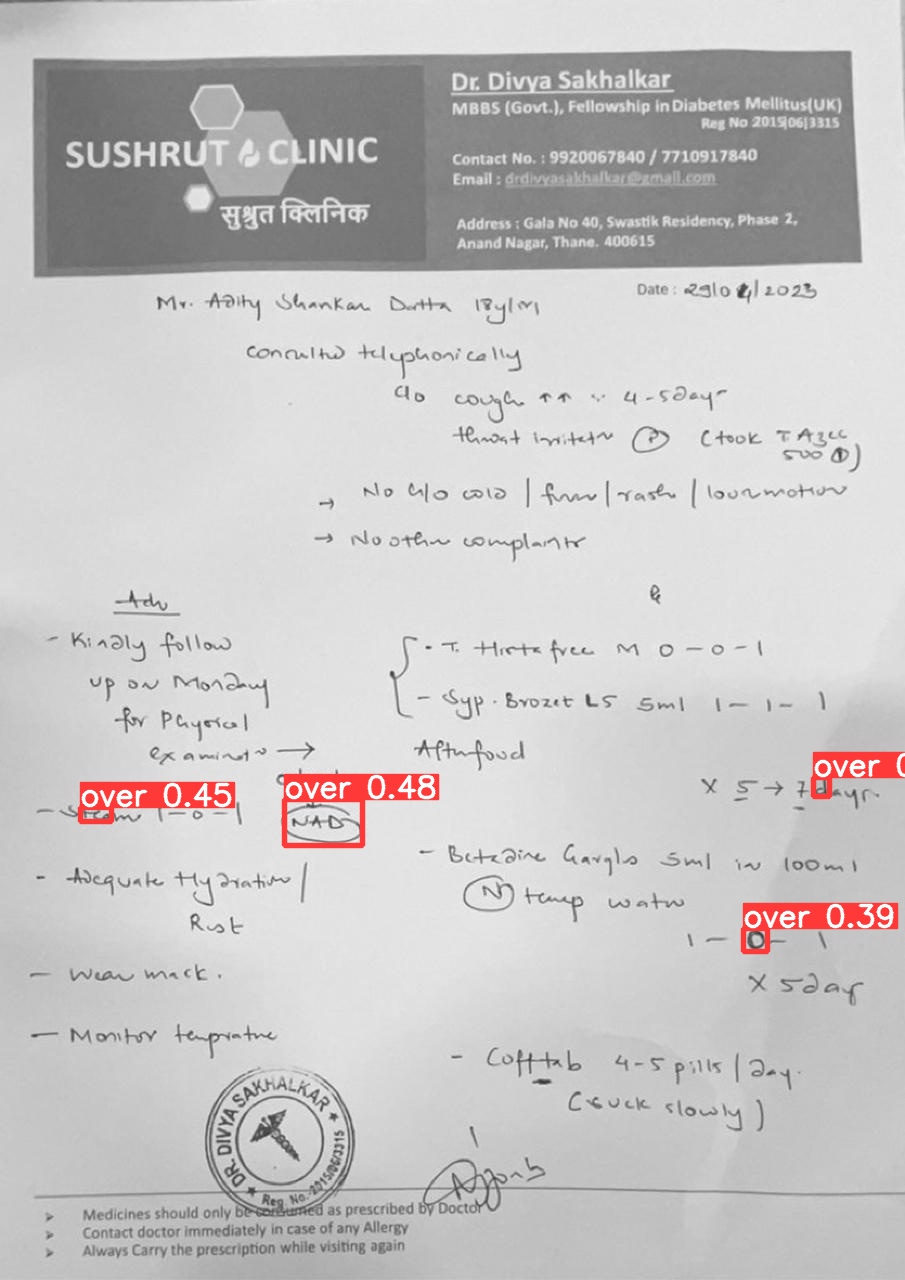 SUSHRUT CLINIC
सुश्रुत क्लिनिक
Dr. Divya Sakhalkar
MBBS (Govt.), Fellowship in Diabetes Mellitus(UK)
Reg No 2015|06|3315
Contact No. : 9920067840 / 7710917840
Email : drdivyasakhalkar@gmail.com
Address : Gala No 40, Swastik Residency, Phase 2,
Anand Nagar, Thane. 400615
Date : 29/04/2023
Mr. Adity Shankar Dutta 18y/M
Consulted telephonically
c/o cough ↑↑ 4-5 days
throat irritatn (P) (took T Azee
500 (1))
→ No c/o cold / fever / rash / loosemotion
→ No other complaints
Adv
- Kindly follow
up on Monday
for Physical
examinatn →
- Steam 1-0-1
NAD
- Adequate Hydration /
Rest
- Wear mask.
- Monitor temprature
&
- T. Histafree M 0-0-1
- Syp. Brozet LS 5ml 1-1-1
After food
x 5 → 7 days.
- Betadine Gargles 5ml in 100ml
(N) temp water
1-0-1
x 5 day
- Cofftab 4-5 pills / day.
(suck slowly)
over 0.45
over 0.48
over 0
over 0.39
DR. DIVYA SAKHALKAR
Reg. No.-2015/06/3315
Medicines should only be consumed as prescribed by Doctor
Contact doctor immediately in case of any Allergy
Always Carry the prescription while visiting again